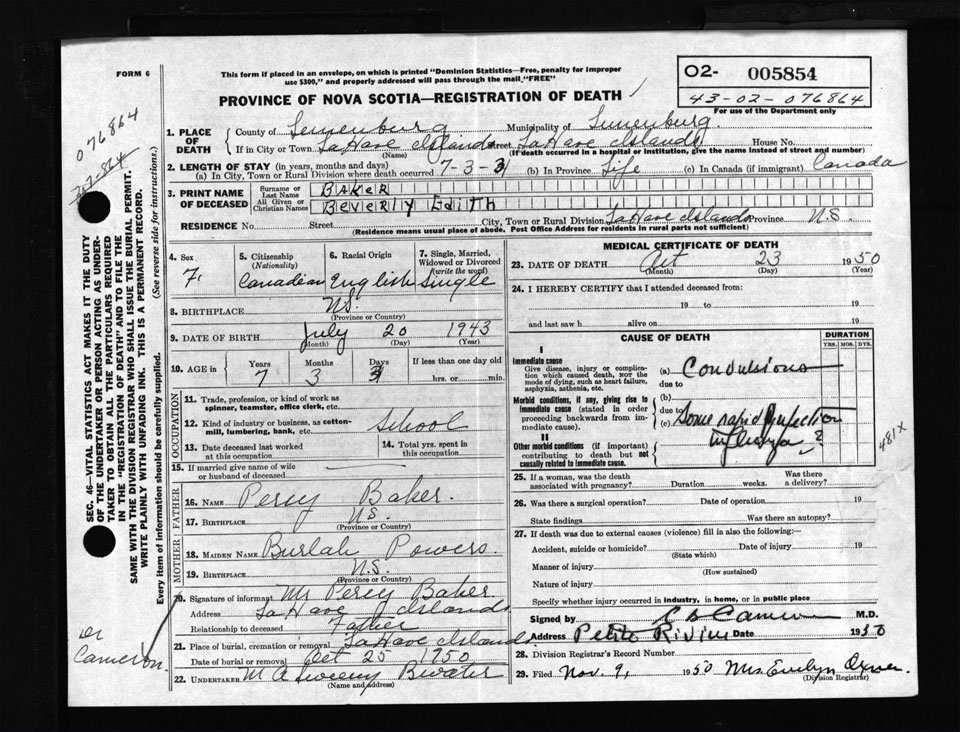 FORM 6
This form if placed in an envelope, on which is printed "Dominion Statistics—Free, penalty for improper
use $300," and properly addressed will pass through the mail "FREE"
PROVINCE OF NOVA SCOTIA—REGISTRATION OF DEATH
02- 005854
43-02-076864
For use of the Department only
076864
SEC. 46—VITAL STATISTICS ACT MAKES IT THE DUTY
OF THE UNDERTAKER OR PERSON ACTING AS UNDER-
TAKER TO OBTAIN ALL THE PARTICULARS REQUIRED
IN THE "REGISTRATION OF DEATH" AND TO FILE THE
SAME WITH THE DIVISION REGISTRAR WHO SHALL ISSUE THE BURIAL PERMIT.
WRITE PLAINLY WITH UNFADING INK. THIS IS A PERMANENT RECORD.
Every item of information should be carefully supplied. (See reverse side for instructions.)
1. PLACE OF DEATH
County of Lunenburg Municipality of Lunenburg.
If in City or Town LaHave Islands Street LaHave Islands House No.
(Name) (If death occurred in a hospital or institution, give the name instead of street and number)
2. LENGTH OF STAY (in years, months and days)
(a) In City, Town or Rural Division where death occurred 7-3-3 (b) In Province Life (c) In Canada (if immigrant) Canada
3. PRINT NAME OF DECEASED
Surname or Last Name BAKER
All Given or Christian Names Beverly Edith
RESIDENCE No. Street City, Town or Rural Division LaHave Islands Province N.S.
(Residence means usual place of abode. Post Office Address for residents in rural parts not sufficient)
4. Sex F.
5. Citizenship (Nationality) Canadian
6. Racial Origin English
7. Single, Married, Widowed or Divorced (write the word) Single
8. BIRTHPLACE N.S.
(Province or Country)
9. DATE OF BIRTH July 20 1943
(Month) (Day) (Year)
10. AGE in Years 7 Months 3 Days 3 If less than one day old
hrs. or min.
OCCUPATION
11. Trade, profession, or kind of work as
spinner, teamster, office clerk, etc.
12. Kind of industry or business, as cotton-
mill, lumbering, bank, etc. School
13. Date deceased last worked
at this occupation
14. Total yrs. spent in
this occupation
15. If married give name of wife
or husband of deceased
FATHER
16. NAME Percy Baker.
17. BIRTHPLACE N.S.
(Province or Country)
MOTHER
18. MAIDEN NAME Burlah Powers.
19. BIRTHPLACE N.S.
(Province or Country)
20. Signature of informant Mr Percy Baker.
Address LaHave Islands
Relationship to deceased Father
21. Place of burial, cremation or removal LaHave Islands
Date of burial or removal Oct 25 1950
22. UNDERTAKER M A Sweeny Bwater
(Name and address)
Dr Cameron.
MEDICAL CERTIFICATE OF DEATH
23. DATE OF DEATH Oct 23 1950
(Month) (Day) (Year)
24. I HEREBY CERTIFY that I attended deceased from:
19 to 19
and last saw h alive on 19
CAUSE OF DEATH
DURATION
YRS. MOS. DYS.
I
Immediate cause
Give disease, injury or complica-
tion which caused death, NOT the
mode of dying, such as heart failure,
asphyxia, asthenia, etc.
(a) Convulsions
due to
Morbid conditions, if any, giving rise to
immediate cause (stated in order
proceeding backwards from im-
mediate cause).
(b)
due to
(c) Some rapid infection
influenza ?
II
Other morbid conditions (if important)
contributing to death but not
causally related to immediate cause.
481X
25. If a woman, was the death
associated with pregnancy? Duration weeks. Was there
a delivery?
26. Was there a surgical operation? Date of operation 19
State findings Was there an autopsy?
27. If death was due to external causes (violence) fill in also the following:—
Accident, suicide or homicide? Date of injury 19
(State which)
Manner of injury
(How sustained)
Nature of injury
Specify whether injury occurred in industry, in home, or in public place
Signed by C B Cameron M.D.
Address Petite Riviere Date 1950
28. Division Registrar's Record Number
29. Filed Nov. 9, 1950 Mrs. Evelyn
(Division Registrar)